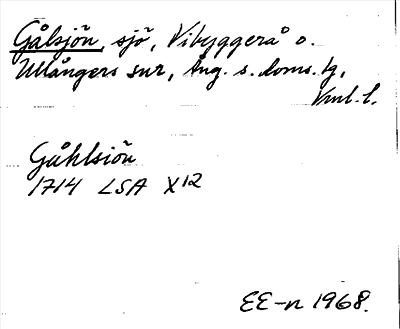 Gålsjön, sjö, Vibyggerå o.
Ullångers snr, Ång. s. doms. tg,
Vnl. l.
Gåhlsiön
1714 LSA X12
EE-n 1968.